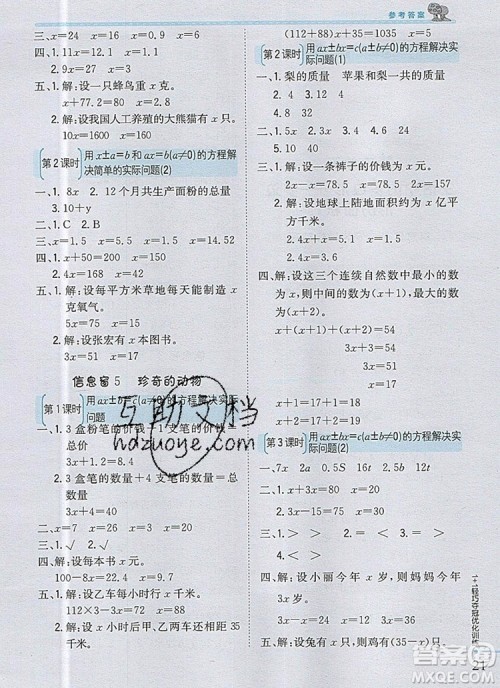 参考答案
三、x=24 x=16 x=3
四、1.1x=152 x=152
2.9x=24.3 x=2.7
五、1.解:设一只蜂鸟重 x 克。
x+77.2=80 x=2.8
2.解:设我国人工养殖的大熊猫有 x 只。
10x=1600 x=160
第2课时 用ax±a=b和ax=b(a≠0)的方程解
决简单的实际问题(2)
一、1.8x 2.12 个月共生产面粉的总量
3.10+y
二、1.C 2.B
三、x=0.5 x=1.5 x=0.9
四、1.x+50=200 x=150
2.4x=168 x=42
五、1.解:设每平方米草地每天能制造 x
克氧气。
5x=75 x=15
2.解:设张宏有 x 本图书。
3x=51 x=17
信息窗 5 珍奇的动物
第1课时 用ax±b=c(a≠0)的方程解决实际
问题
一、1.3 盒粉笔的价钱+1 支笔的价钱=
总价
3x+1.2=58.8
2.3 盒笔的数量+4 支笔的数量=总
数量
3x+4=40
二、x=7 x=0.5 x=120
三、1.√ 2.√
四、解:设每本书 x 元。
100-8x=22.4 x=9.7
五、1.解:设甲车每小时行 x 千米。
112×3-3x=72 x=88
2.解:设出发时,甲、乙两车相距 x 千米。
(112+88)x÷35+35=1035 x=5
第2课时 用ax±bx=c(a±b≠0)的方程解决实
际问题(1)
一、1.梨的质量 苹果和梨一共的质量
2.5 3.8 4.39
二、x=9 x=15 x=12
三、1.解:设一条裤子的价钱为 x 元。
2x=158-x x=52
2.解:设地球上陆地面积约为 x 亿平
方千米。
2.4x-x=2.1 x=1.5
四、解:设这三个连续自然数中最小的数
为 x,则另外两个数为(x+1)和
(x+2)。
x+(x+1)+(x+2)=54
3x+3=54
3x=51
x=17
x+1=18
x+2=19
第3课时 用ax±bx=c(a±b≠0)的方程解决实
际问题(2)
一、7x 2a 0.5S 16b 8t 12t
二、1.= 2.> 3.> 4.<
三、x=7 x=15 x=3
四、解:设小丽今年 x 岁,则妈妈今年
3x 岁。
3x-x=24 x=12 3x=36
五、解:设兔有 x 只,则鸡有 3x 只。
1+1轻巧夺冠优化训练
21
互助文档
hdzuoye.com
MXQE.COM